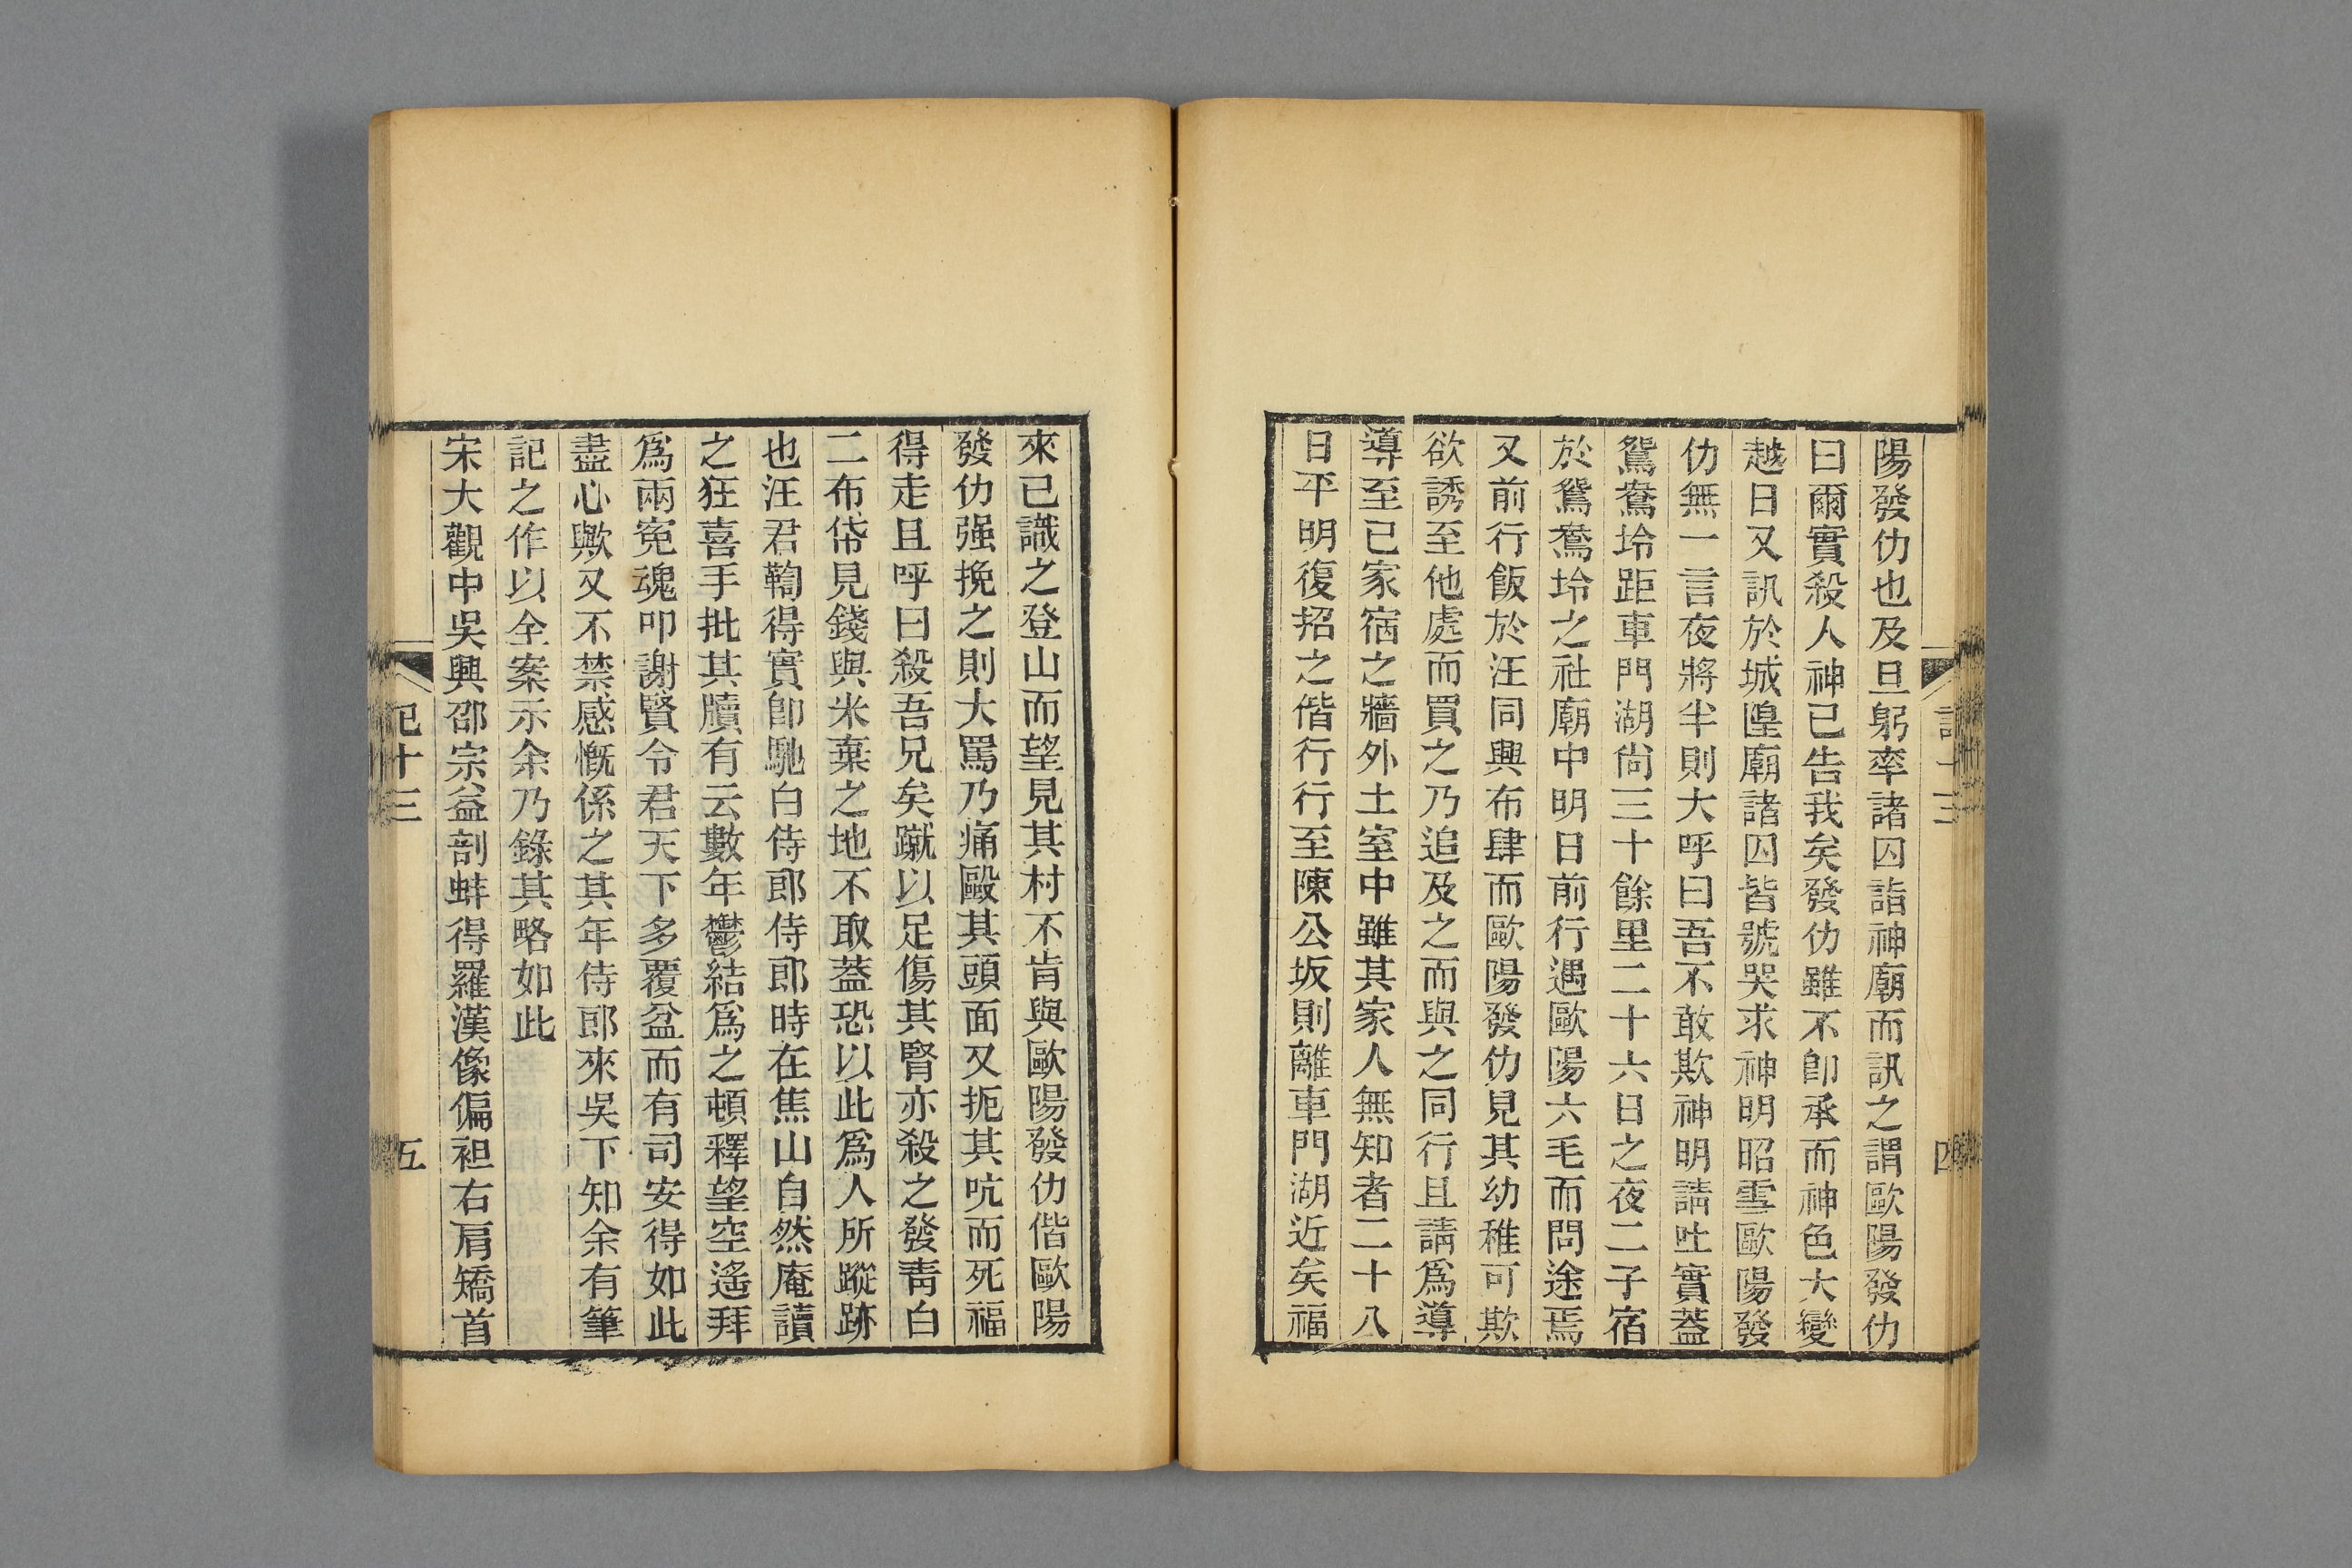 陽發仂也及旦躬率諸囚詣神廟而訊之謂歐陽發仂
曰爾實殺人神已告我矣發仂雖不卽承而神色大變
越日又訊於城隍廟諸囚皆號哭求神明昭雪歐陽發
仂無一言夜將半則大呼曰吾不敢欺神明請吐實葢
鴛鴦坽距車門湖尙三十餘里二十六日之夜二子宿
於鴛鴦坽之社廟中明日前行遇歐陽六毛而問途焉
又前行飯於汪同興布肆而歐陽發仂見其幼稚可欺
欲誘至他處而買之乃追及之而與之同行且請爲導
導至已家宿之牆外土室中雖其家人無知者二十八
日平明復招之偕行行至陳公坂則離車門湖近矣福
來已識之登山而望見其村不肯與歐陽發仂偕歐陽
發仂强挽之則大罵乃痛毆其頭面又扼其吭而死福
得走且呼曰殺吾兄矣蹴以足傷其腎亦殺之發靑白
二布帒見錢與米棄之地不取葢恐以此爲人所蹤跡
也汪君鞫得實卽馳白侍郎侍郎時在焦山自然庵讀
之狂喜手批其牘有云數年鬱結爲之頓釋望空遙拜
爲兩寃魂叩謝賢令君天下多覆盆而有司安得如此
盡心歟又不禁感慨係之其年侍郎來吳下知余有筆
記之作以全案示余乃錄其略如此
宋大觀中吳興邵宗益剖蚌得羅漢像偏袒右肩矯首
記十三
五